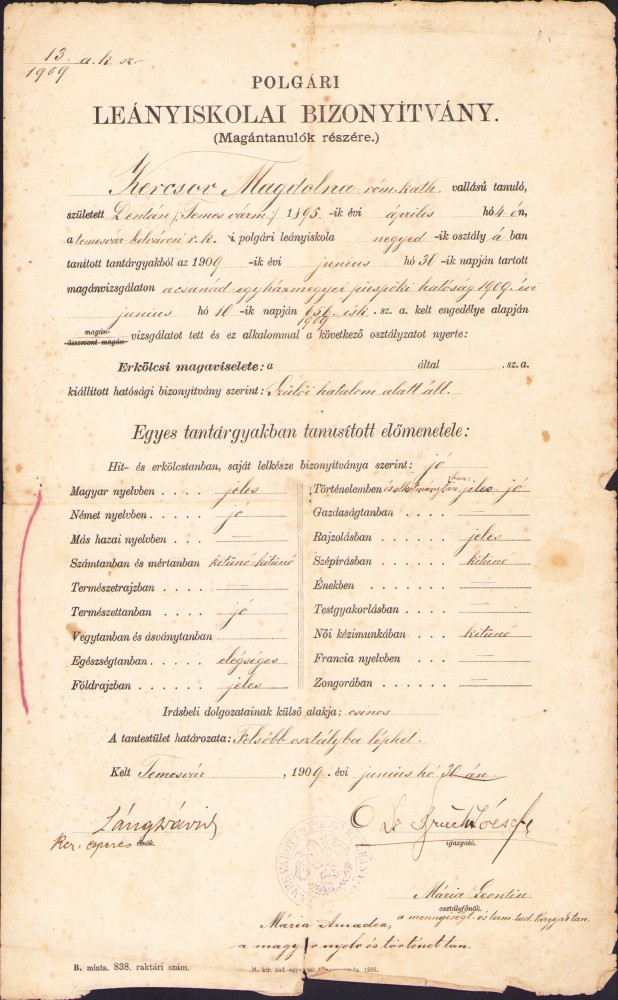 13 a. k. sz.
1909
POLGÁRI
LEÁNYISKOLAI BIZONYÍTVÁNY.
(Magántanulók részére.)
Kercsov Magdolna róm. kath. vallású tanuló,
született Dentán (Temes várm.) 1895-ik évi április hó 4-én,
a temesvár belvárosi r. k. i polgári leányiskola negyed-ik osztály á ban
tanított tantárgyakból az 1909-ik évi junius hó 30-ik napján tartott
magánvizsgálaton a csanád egyházmegyei püspöki hatóság 1909. évi
junius hó 10-ik napján 656. isk. sz. a. kelt engedélye alapján
1909
magán-
összevont magán- vizsgálatot tett és ez alkalommal a következő osztályzatot nyerte:
Erkölcsi magaviselete: a által sz. a.
kiállított hatósági bizonyítvány szerint: Szülői hatalom alatt áll.
Egyes tantárgyakban tanusított előmenetele:
Hit- és erkölcstanban, saját lelkésze bizonyítványa szerint: jó
Magyar nyelvben jeles
Német nyelvben jó
Más hazai nyelvben —
Számtanban és mértanban kitünő kitünő
Természetrajzban —
Természettanban jó
Vegytanban és ásványtanban —
Egészségtanban elégséges
Földrajzban jeles
Történelemben és alkotmánytanban: jeles jó
Gazdaságtanban —
Rajzolásban jeles
Szépírásban kitünő
Énekben —
Testgyakorlásban —
Női kézimunkában kitünő
Francia nyelvben —
Zongorában —
Irásbeli dolgozatainak külső alakja: csinos
A tantestület határozata: Felsőbb osztályba léphet.
Kelt Temesvár, 1909. évi junius hó 30-án
Láng Dávid
ker. esperes elnök.
Dr
József
igazgató.
Mária Leontin
osztályfőnök.
a mennyiségt. és term. tud. tárgyak tan.
Mária Amadea,
a magyar nyelv és történet tan.
B. minta. 838. raktári szám.
M. kir. tud. egyetemi 1906.